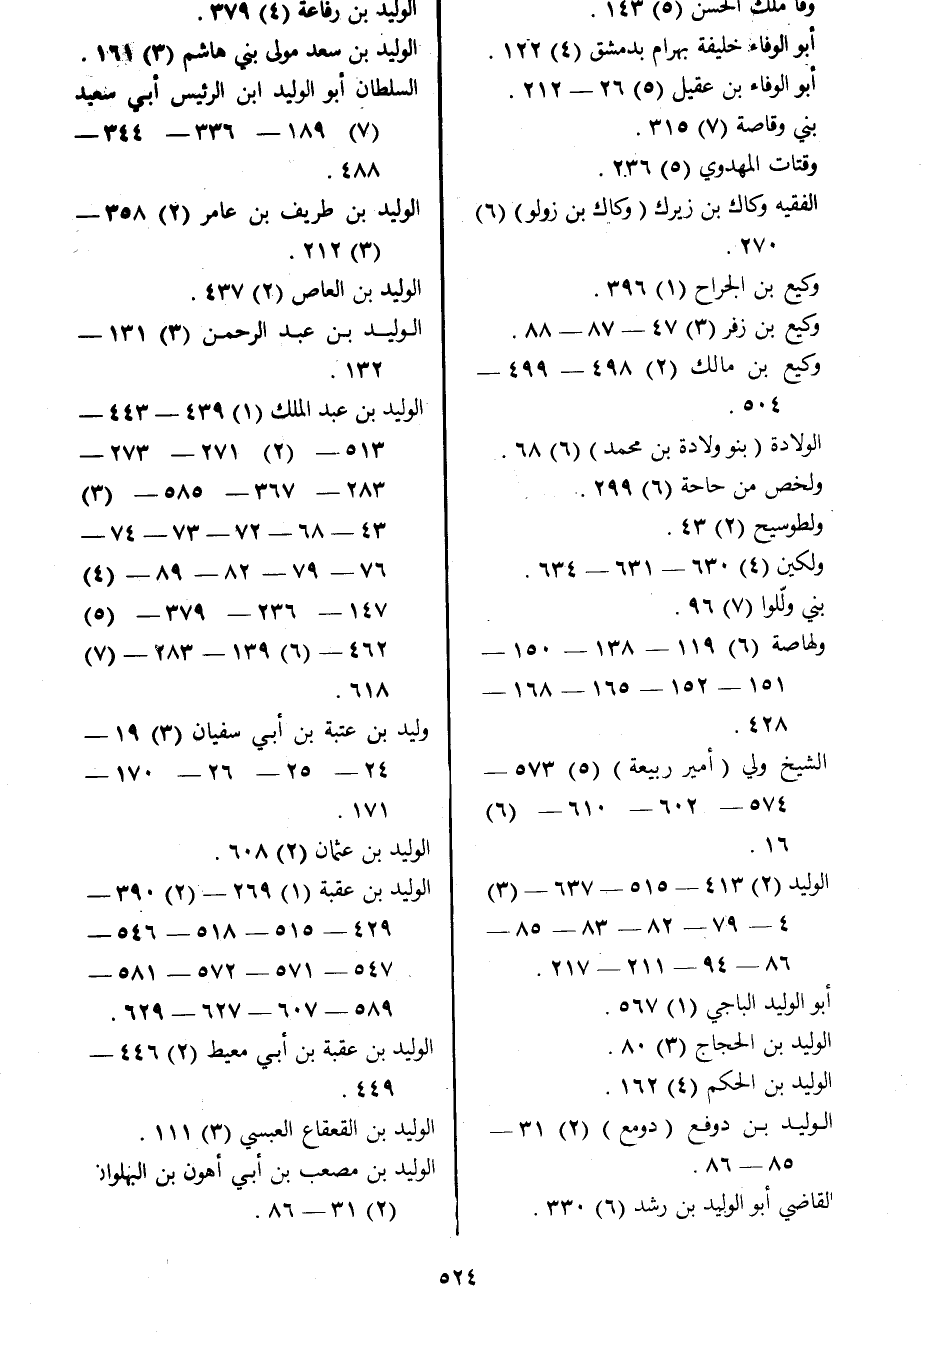 وفا ملك الحسن (٥) ١٤٣ .
أبو الوفاء خليفة بهرام بدمشق (٤) ١٢٢ .
أبو الوفاء بن عقيل (٥) ٢٦ — ٢١٢ .
بني وقاصة (٧) ٣١٥ .
وقتات المهدوي (٥) ٢٣٦ .
الفقيه وكاك بن زيرك ( وكاك بن زولو ) (٦)
٢٧٠ .
وكيع بن الجراح (١) ٣٩٦ .
وكيع بن زفر (٣) ٤٧ — ٨٧ — ٨٨ .
وكيع بن مالك (٢) ٤٩٨ — ٤٩٩ —
٥٠٤ .
الولادة ( بنو ولادة بن محمد ) (٦) ٦٨ .
ولخص من حاحة (٦) ٢٩٩ .
ولطوسيح (٢) ٤٣ .
ولكين (٤) ٦٣٠ — ٦٣١ — ٦٣٤ .
بني وللوا (٧) ٩٦ .
ولهاصة (٦) ١١٩ — ١٣٨ — ١٥٠ —
١٥١ — ١٥٢ — ١٦٥ — ١٦٨ —
٤٢٨ .
الشيخ ولي ( أمير ربيعة ) (٥) ٥٧٣ —
٥٧٤ — ٦٠٢ — ٦١٠ — (٦)
١٦ .
الوليد (٢) ٤١٣ — ٥١٥ — ٦٣٧ — (٣)
٤ — ٧٩ — ٨٢ — ٨٣ — ٨٥ —
٨٦ — ٩٤ — ٢١١ — ٢١٧ .
أبو الوليد الباجي (١) ٥٦٧ .
الوليد بن الحجاج (٣) ٨٠ .
الوليد بن الحكم (٤) ١٦٢ .
الوليد بن دوفع ( دومع ) (٢) ٣١ —
٨٥ — ٨٦ .
القاضي أبو الوليد بن رشد (٦) ٣٣٠ .
الوليد بن رفاعة (٤) ٣٧٩ .
الوليد بن سعد مولى بني هاشم (٣) ١٦١ .
السلطان أبو الوليد ابن الرئيس أبي سعيد
(٧) ١٨٩ — ٣٣٦ — ٣٤٤ —
٤٨٨ .
الوليد بن طريف بن عامر (٢) ٣٥٨ —
(٣) ٢١٢ .
الوليد بن العاص (٢) ٤٣٧ .
الوليد بن عبد الرحمن (٣) ١٣١ —
١٣٢ .
الوليد بن عبد الملك (١) ٤٣٩ — ٤٤٣ —
٥١٣ — (٢) ٢٧١ — ٢٧٣ —
٢٨٣ — ٣٦٧ — ٥٨٥ — (٣)
٤٣ — ٦٨ — ٧٢ — ٧٣ — ٧٤ —
٧٦ — ٧٩ — ٨٢ — ٨٩ — (٤)
١٤٧ — ٢٣٦ — ٣٧٩ — (٥)
٤٦٢ — (٦) ١٣٩ — ٢٨٣ — (٧)
٦١٨ .
وليد بن عتبة بن أبي سفيان (٣) ١٩ —
٢٤ — ٢٥ — ٢٦ — ١٧٠ —
١٧١ .
الوليد بن عثمان (٢) ٦٠٨ .
الوليد بن عقبة (١) ٢٦٩ — (٢) ٣٩٠ —
٤٢٩ — ٥١٥ — ٥١٨ — ٥٤٦ —
٥٤٧ — ٥٧١ — ٥٧٢ — ٥٨١ —
٥٨٩ — ٦٠٧ — ٦٢٧ — ٦٢٩ .
الوليد بن عقبة بن أبي معيط (٢) ٤٤٦ —
٤٤٩ .
الوليد بن القعقاع العبسي (٣) ١١١ .
الوليد بن مصعب بن أبي أهون بن الهلوان
(٢) ٣١ — ٨٦ .
٥٢٤